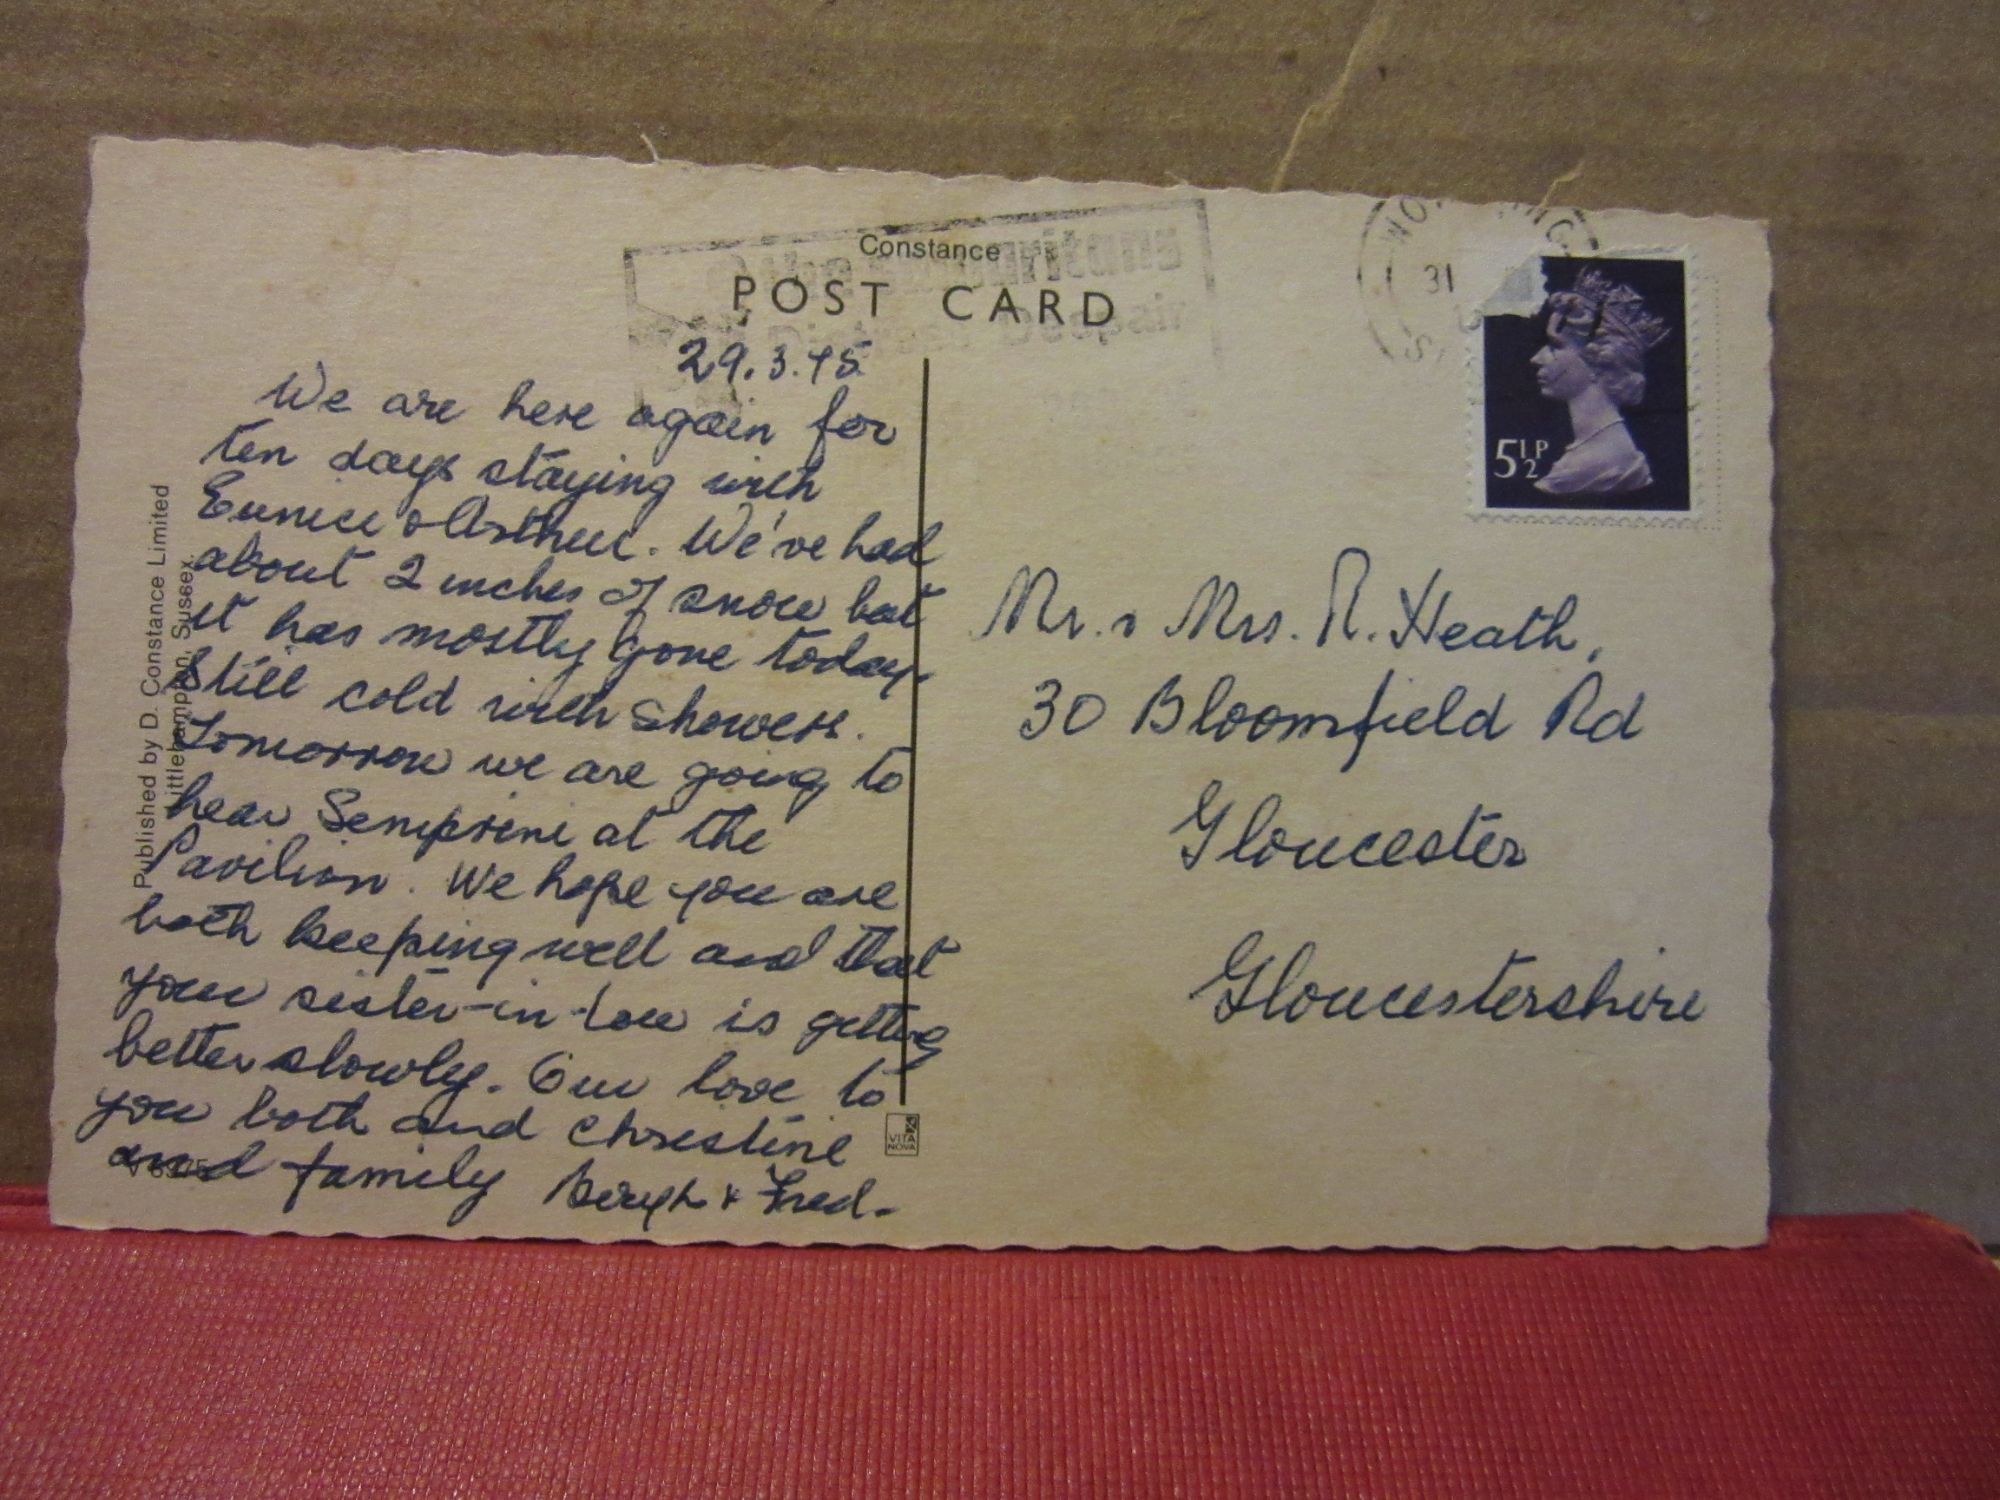 Constance
POST CARD
29.3.75
We are here again for
ten days staying with
Eunice & Arthur. We've had
about 2 inches of snow but
it has mostly gone today.
Still cold with showers.
Tomorrow we are going to
hear Semprini at the
Pavilion. We hope you are
both keeping well and that
your sister-in-law is getting
better slowly. Our love to
you both and Christine
and family & Fred.
Published by D. Constance Limited
Littlehampton, Sussex.
VITA
NOVA
31
5½P
Mr. & Mrs. R. Heath,
30 Bloomfield Rd
Gloucester
Gloucestershire